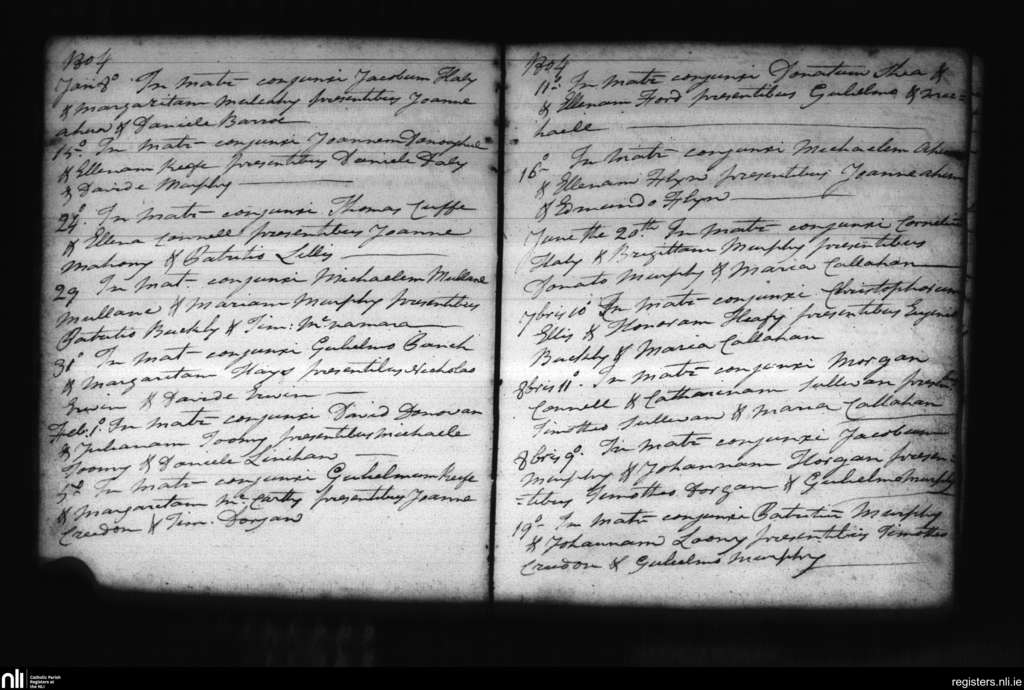 1804
Jan 8º In matr conjunxi Jacobum Haly
& Margaritam Mulcahy presentibus Joanne
ahern & Daniele Barroe
15º In matr conjunxi Joannem Donoghue
& Ellenam Keefe presentibus Daniele Daly
& Davide Murphy
24º In matr conjunxi Thomas Cuffe
& Ellena Connell presentibus Joanne
Mahony & Patritio Lillis
29 In mat conjunxi Michaelem Mullane
Mullane & Mariam Murphy presentibus
Patritio Buckly & Tim: McNamara
31º In mat conjunxi Gulielmo
& Margaritam Hays presentibus Nicholao
Erwin & Davide Erwin
Feb. 1º. In matr conjunxi David Donovan
& Julianam Toomy presentibus Michaele
Toomy & Daniele Linihan
5º In matr conjunxi Gulielmum Keefe
& Margaritam McCarthy presentibus Joanne
Creedon & Tim. Dorgan
1804
11º. In matr conjunxi Donatum Shea &
& Ellenam Ford presentibus Gulielmo & Mic-
haele
16º In matr conjunxi Michaelem Ahern
& Ellenam Flyn presentibus Joanne ahern
& Edmundo Flyn
June the 20th In matr conjunxi Cornelium
Haly & Brigittam Murphy presentibus
Donato Murphy & Maria Callahan
7bris 10º In matr conjunxi Christophorum
Ellis & Honoram Heafy presentibus Eugenio
Buckly & Maria Callahan
8bris 11º. In matr conjunxi Morgan
Connell & Catharinam Sullivan presentibus
Timotheo Sullivan & Maria Callahan
8bris 9º. In matr conjunxi Jacobum
Murphy & Johannam Horgan presen-
-tibus Timotheo Dorgan & Gulielmo Murphy
19º In matr conjunxi Patritium Murphy
& Johannam Loony presentibus Timotheo
Creedon & Gulielmo Murphy
nli
Catholic Parish
Registers at
the NLI
registers.nli.ie